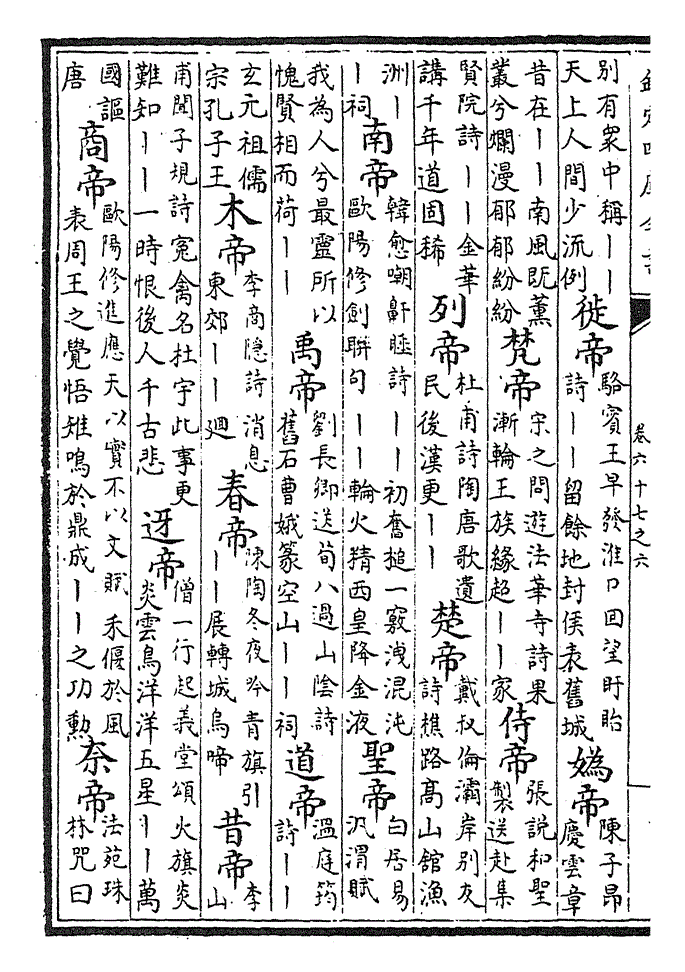 欽定四庫全書
卷六十七之六
別有衆中稱丨丨天上人間少流例 徙帝 駱賓王早發淮口回望盱眙詩丨丨留餘地封侯表舊城 媯帝 陳子昂慶雲章
昔在丨丨南風既薰叢兮爛漫郁郁紛紛 梵帝 宋之問遊法華寺詩果漸輪王族緣超丨丨家 侍帝 張說和聖製送赴集
賢院詩丨丨金華講千年道固稀 列帝 杜甫詩陶唐歌遺民後漢更丨丨 楚帝 戴叔倫灞岸別友詩樵路高山館漁
洲丨丨祠 南帝 韓愈嘲鼾睡詩丨丨初奮槌一竅洩混沌歐陽修劍聯句丨丨輪火精西皇降金液 聖帝 白居易汎渭賦
我為人兮最靈所以愧賢相而荷丨丨 禹帝 劉長卿送荀八過山陰詩舊石曹娥篆空山丨丨祠 道帝 溫庭筠詩丨丨
玄元祖儒宗孔子王 木帝 李商隱詩消息東郊丨丨迴 春帝 陳陶冬夜吟青旗引丨丨展轉城烏啼 昔帝 李山
甫聞子規詩冤禽名杜宇此事更難知丨丨一時恨後人千古悲 迓帝 僧一行起義堂頌火旗炎炎雲鳥洋洋五星丨丨萬
國謳唐 商帝 歐陽修進應天以實不以文賦禾偃於風表周王之覺悟雉鳴於鼎成丨丨之功勳 奈帝 法苑珠林咒曰